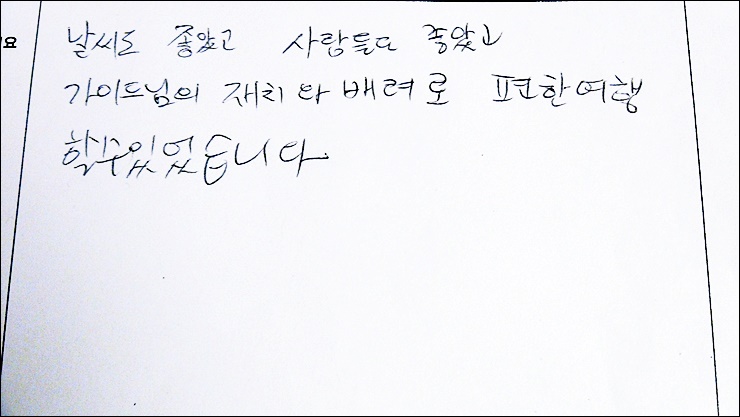 날씨도 좋았고 사람들도 좋았고
가이드님의 재치와 배려로 편한여행
할수있었습니다